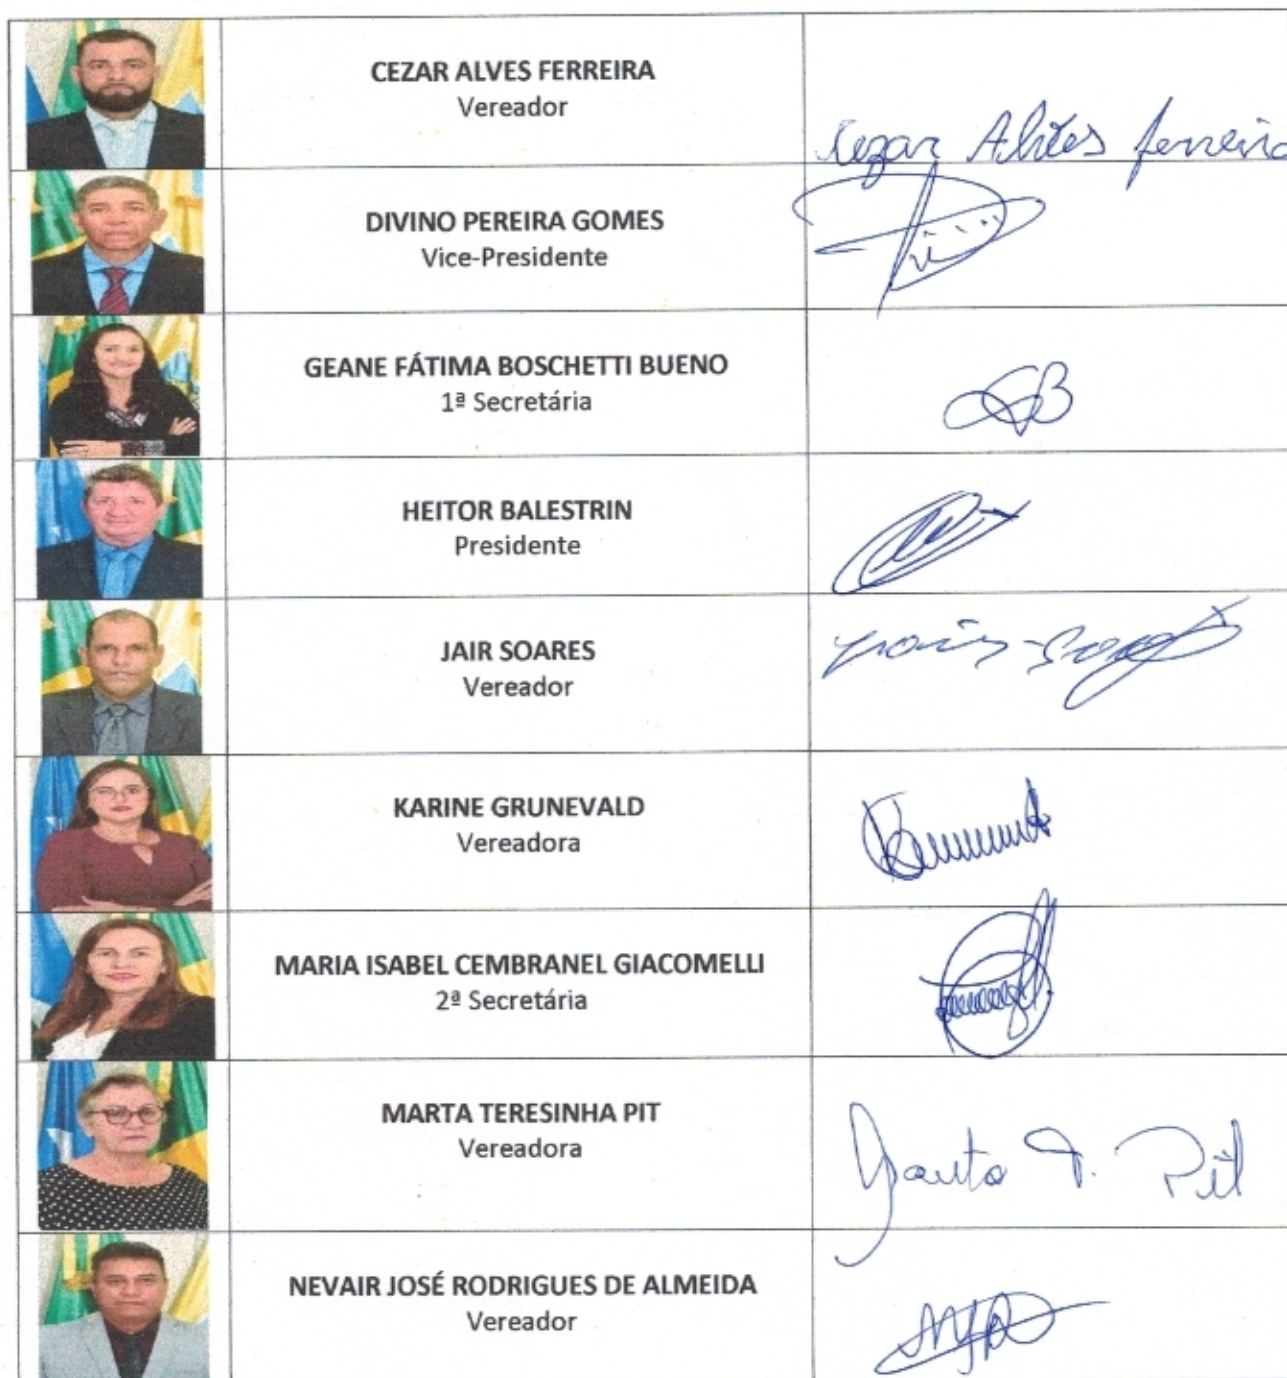 CEZAR ALVES FERREIRA
Vereador
Cezar Alves ferreira
DIVINO PEREIRA GOMES
Vice-Presidente
GEANE FÁTIMA BOSCHETTI BUENO
1ª Secretária
HEITOR BALESTRIN
Presidente
JAIR SOARES
Vereador
KARINE GRUNEVALD
Vereadora
MARIA ISABEL CEMBRANEL GIACOMELLI
2ª Secretária
MARTA TERESINHA PIT
Vereadora
Marta T. Pit
NEVAIR JOSÉ RODRIGUES DE ALMEIDA
Vereador